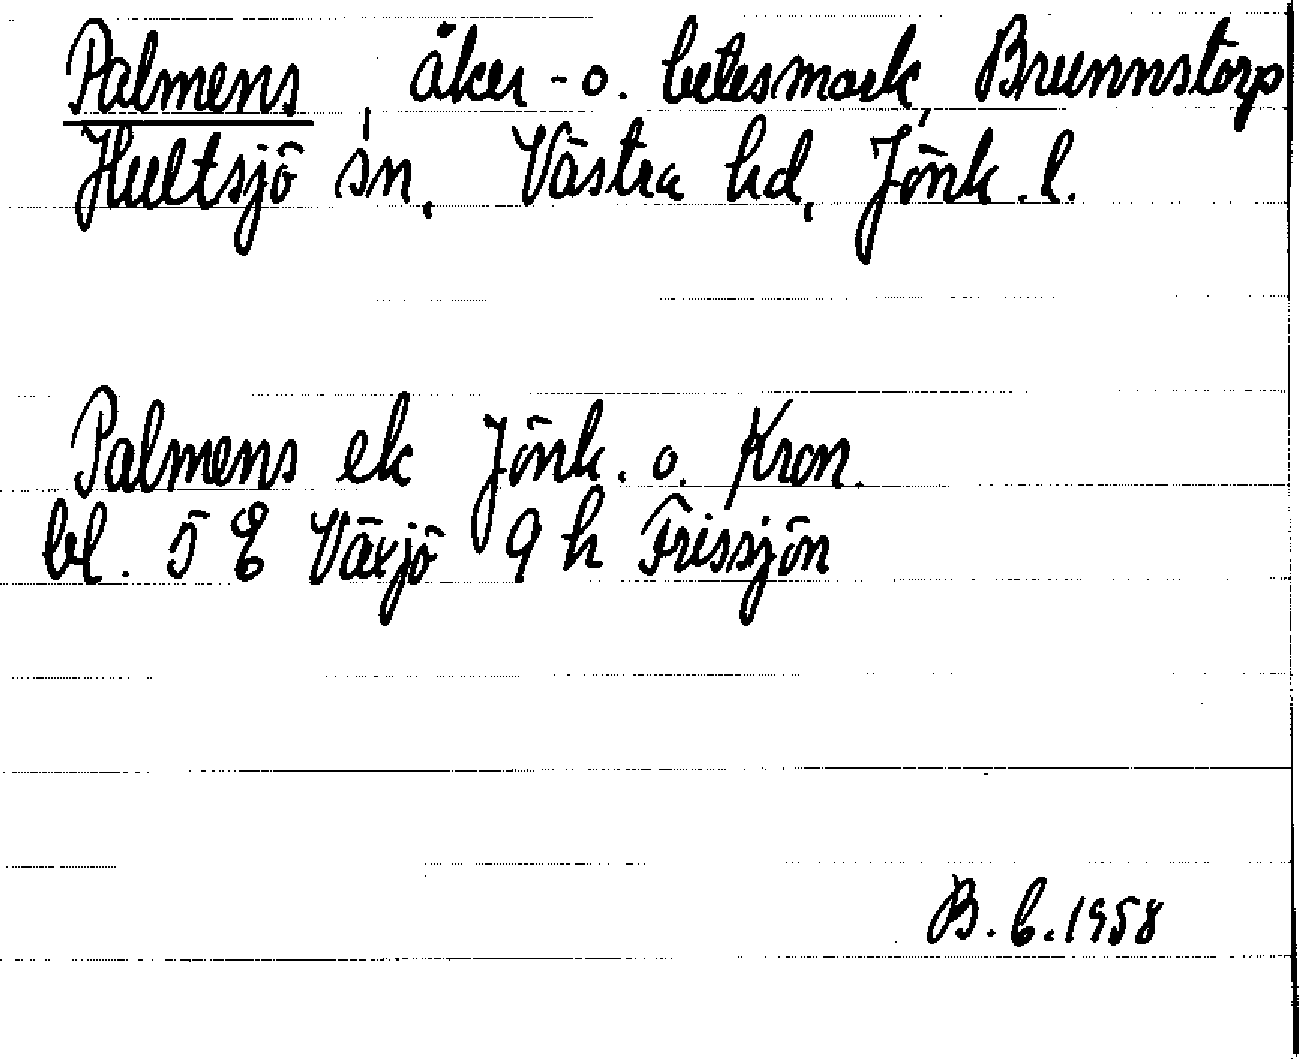 Palmens, åker- o. betesmark, Brunnstorp
Hultsjö sn, Västra hd, Jönk. l.
Palmens ek Jönk. o. Kron.
bl. 5 E Växjö 9 h Frissjön
B. b. 1958